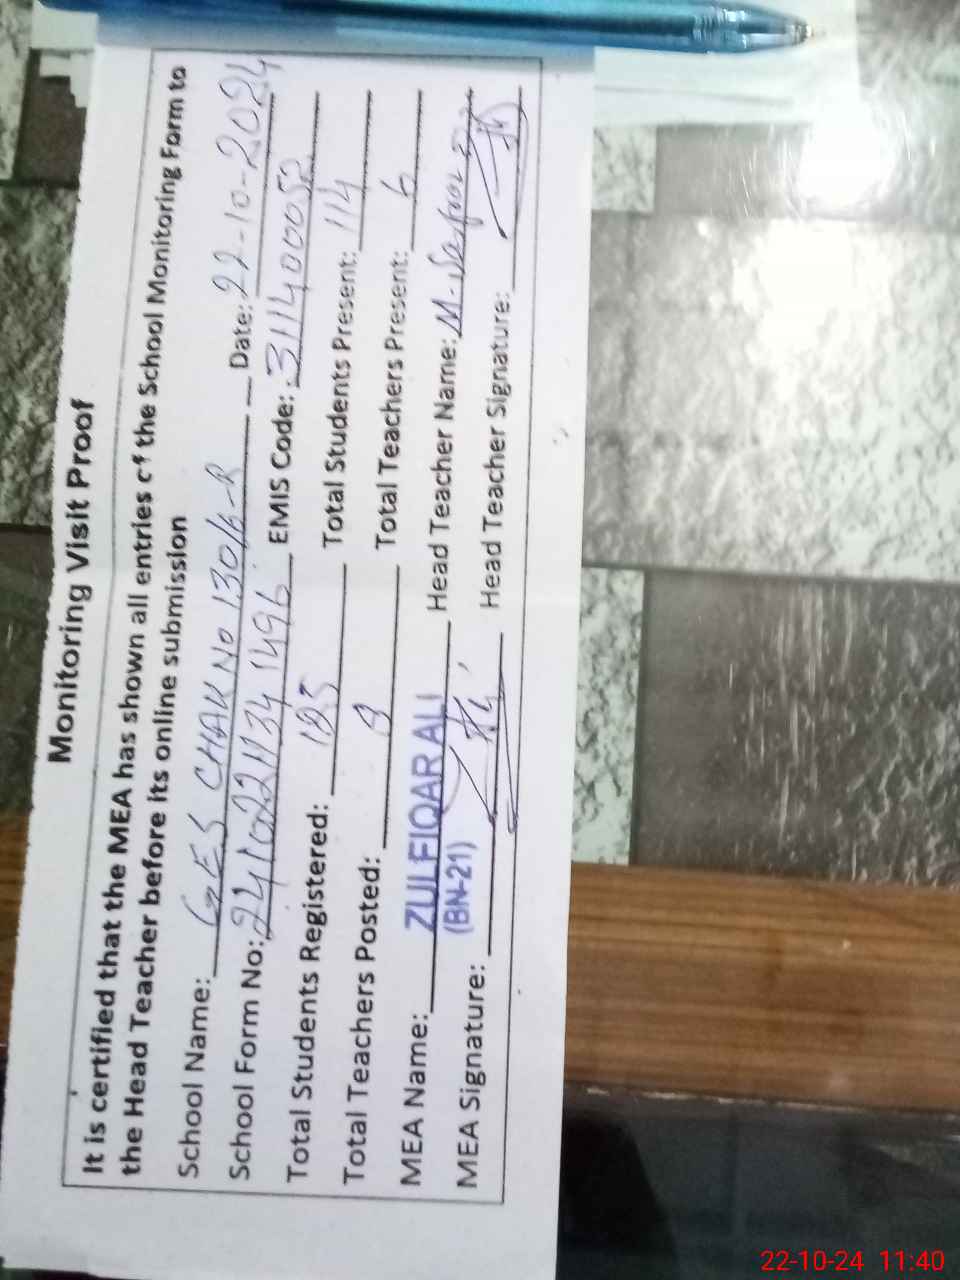 Monitoring Visit Proof
It is certified that the MEA has shown all entries of the School Monitoring Form to
the Head Teacher before its online submission
School Name: GES CHAK No 130/6-R Date: 22-10-2024
School Form No: EMIS Code: 311400052
Total Students Registered: 185 Total Students Present: 114
Total Teachers Posted: 8 Total Teachers Present: 6
MEA Name: ZULFIQAR ALI Head Teacher Name: M.
(BN-21)
MEA Signature: Head Teacher Signature:
22-10-24 11:40